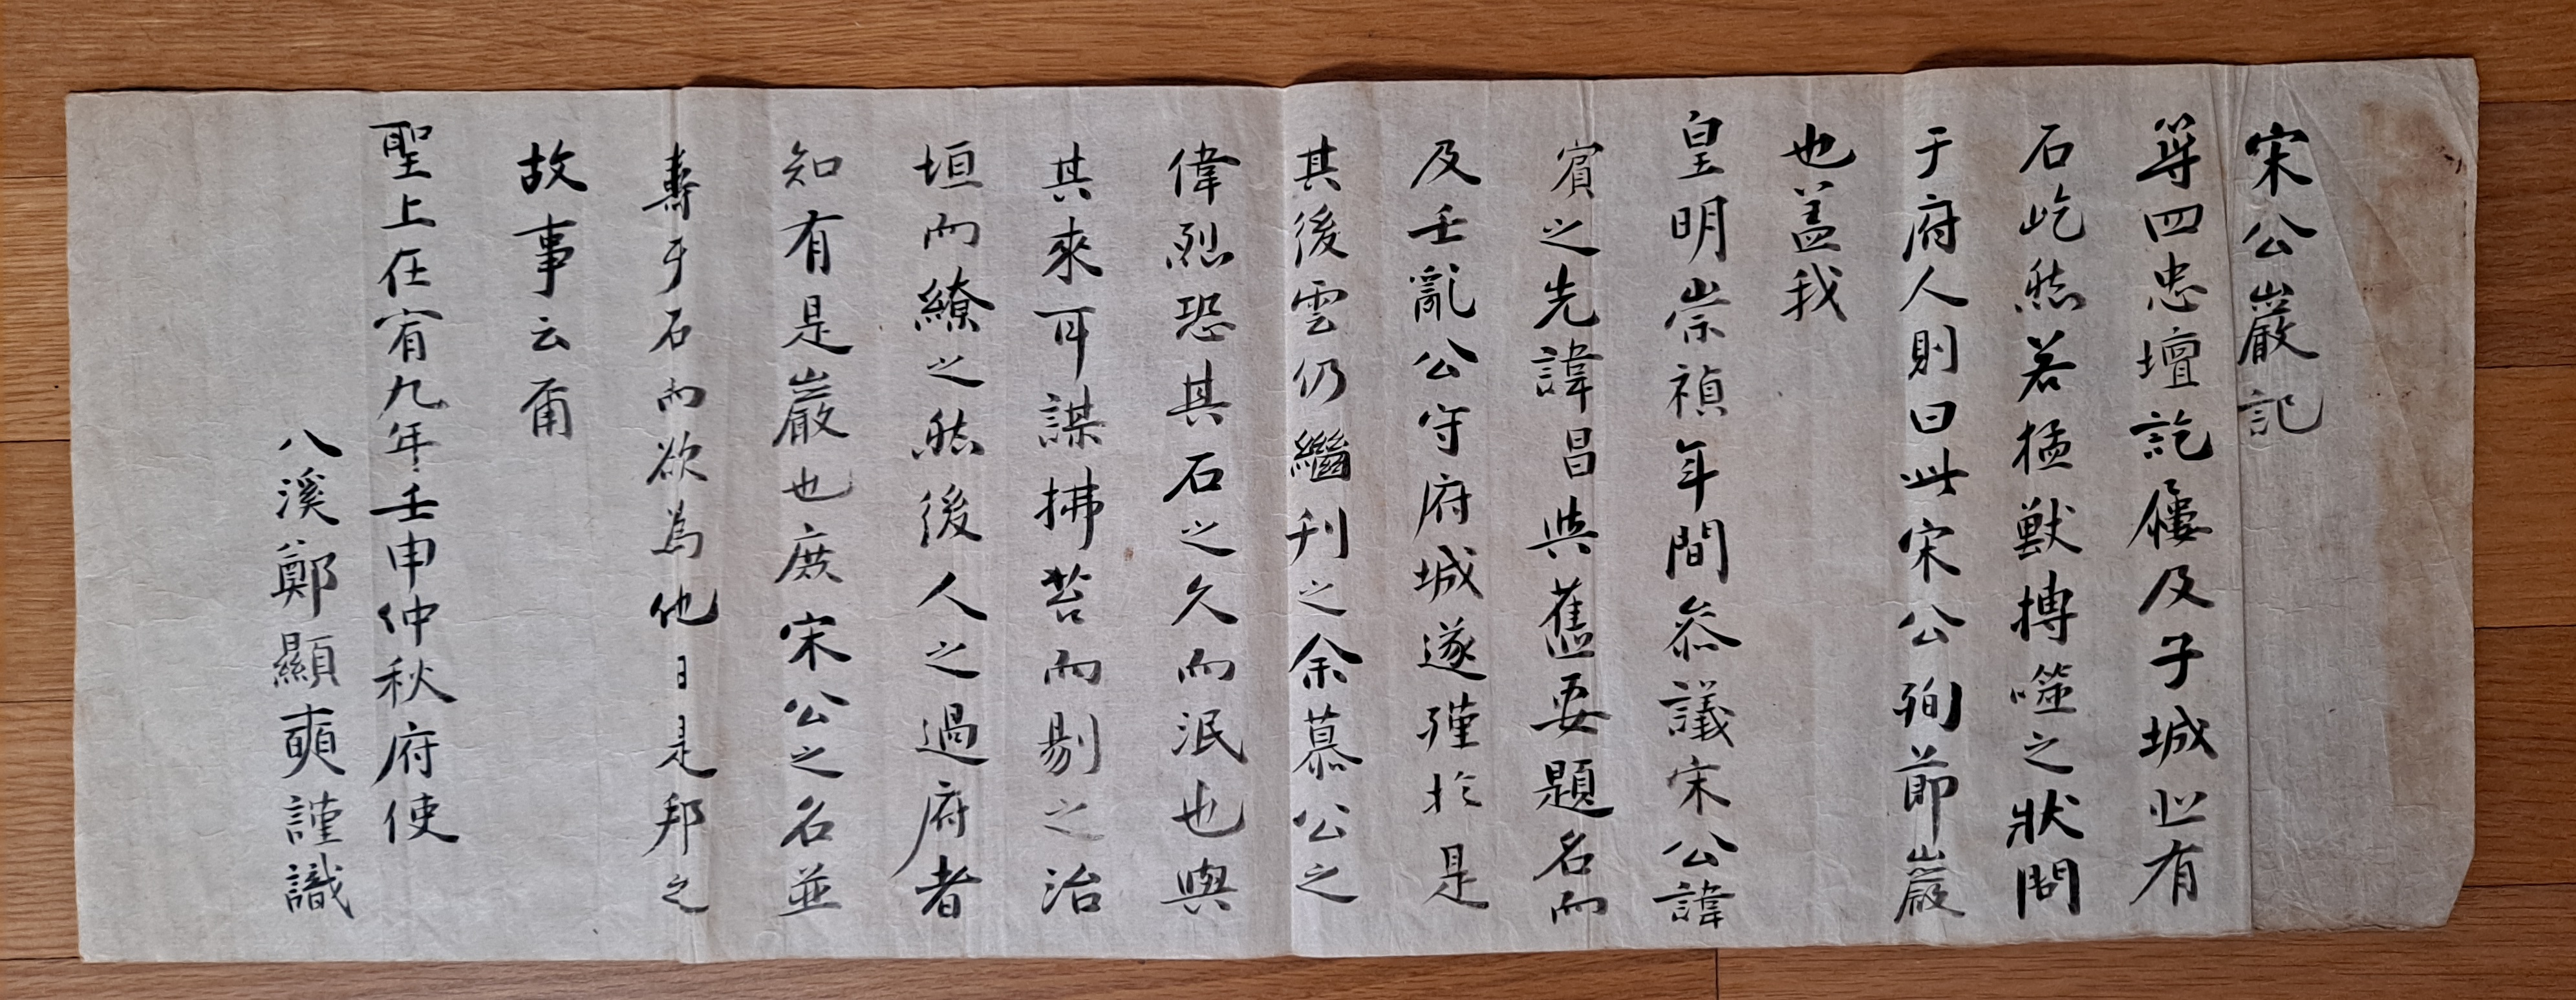 宋公巖記
築四忠壇訖屨及子城北有
石屹然若猛獸搏噬之狀問
于府人則曰此宋公殉節巖
也盖我
皇明崇禎年間叅議宋公諱
賓之先諱昌與舊要題名而
及壬亂公守府城遂殣於是
其後雲仍繼刊之余慕公之
偉烈恐其石之久而泯也與
其來耳謀拂苔而剔之治
垣而繚之然後人之過府者
知有是巖也庶宋公之名並
壽于石而欲為他日是邦之
故事云爾
聖上在宥九年壬申仲秋府使
八溪鄭顯奭謹識